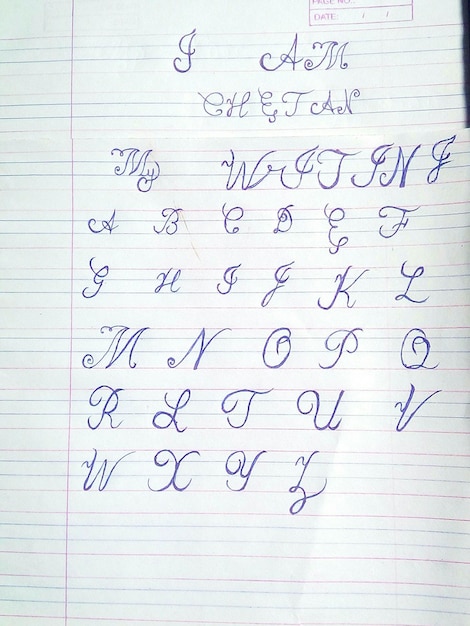 PAGE NO.:
DATE: / /
I AM
CHETAN
My WrITING
A B C D E F
G H I J K L
M N O P Q
R S T U V
W X Y Z